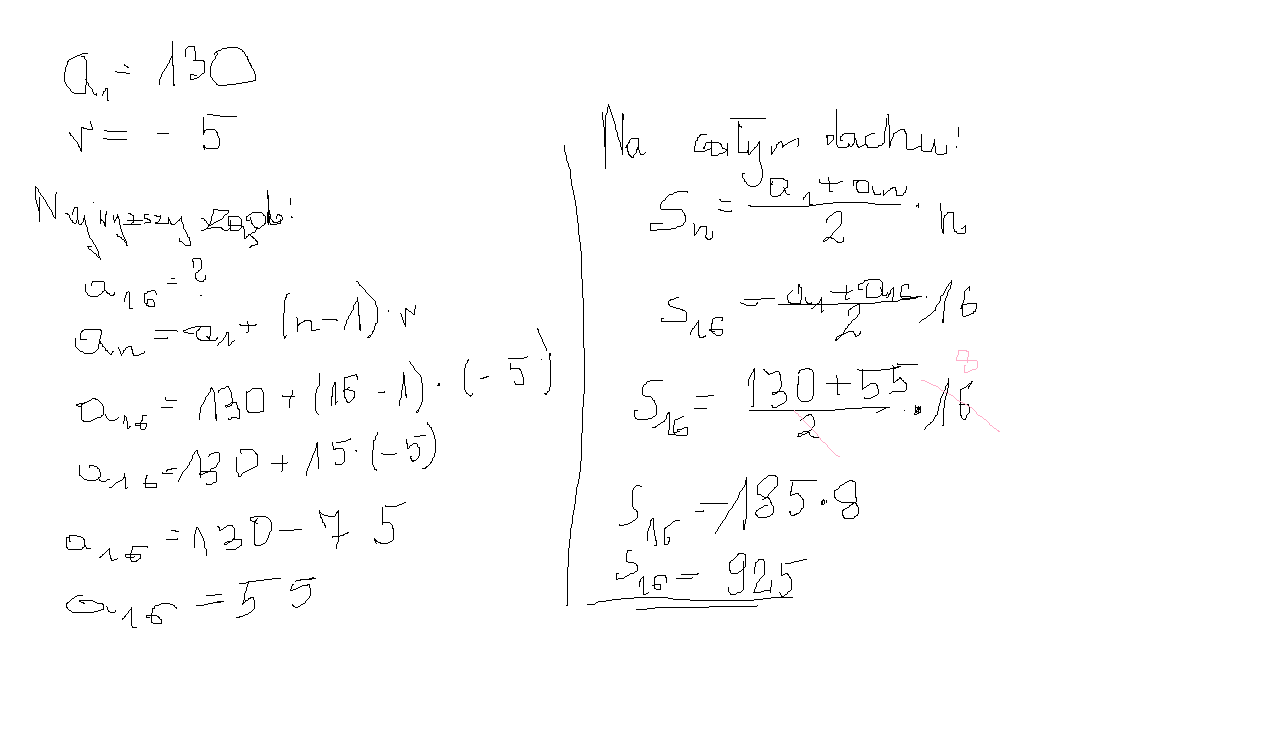 a₁ = 130
r = - 5
Najwyższy rząd:
a₁₆ = ?
aₙ = a₁ + (n-1)·r
a₁₆ = 130 + (16 - 1) · (- 5)
a₁₆ = 130 + 15·(-5)
a₁₆ = 130 - 75
a₁₆ = 55
Na całym dachu:
Sₙ = (a₁ + aₙ)/2 · n
S₁₆ = (a₁ + a₁₆)/2 · 16
S₁₆ = (130 + 55)/2 · 16 8
S₁₆ = 185 · 8
S₁₆ = 925